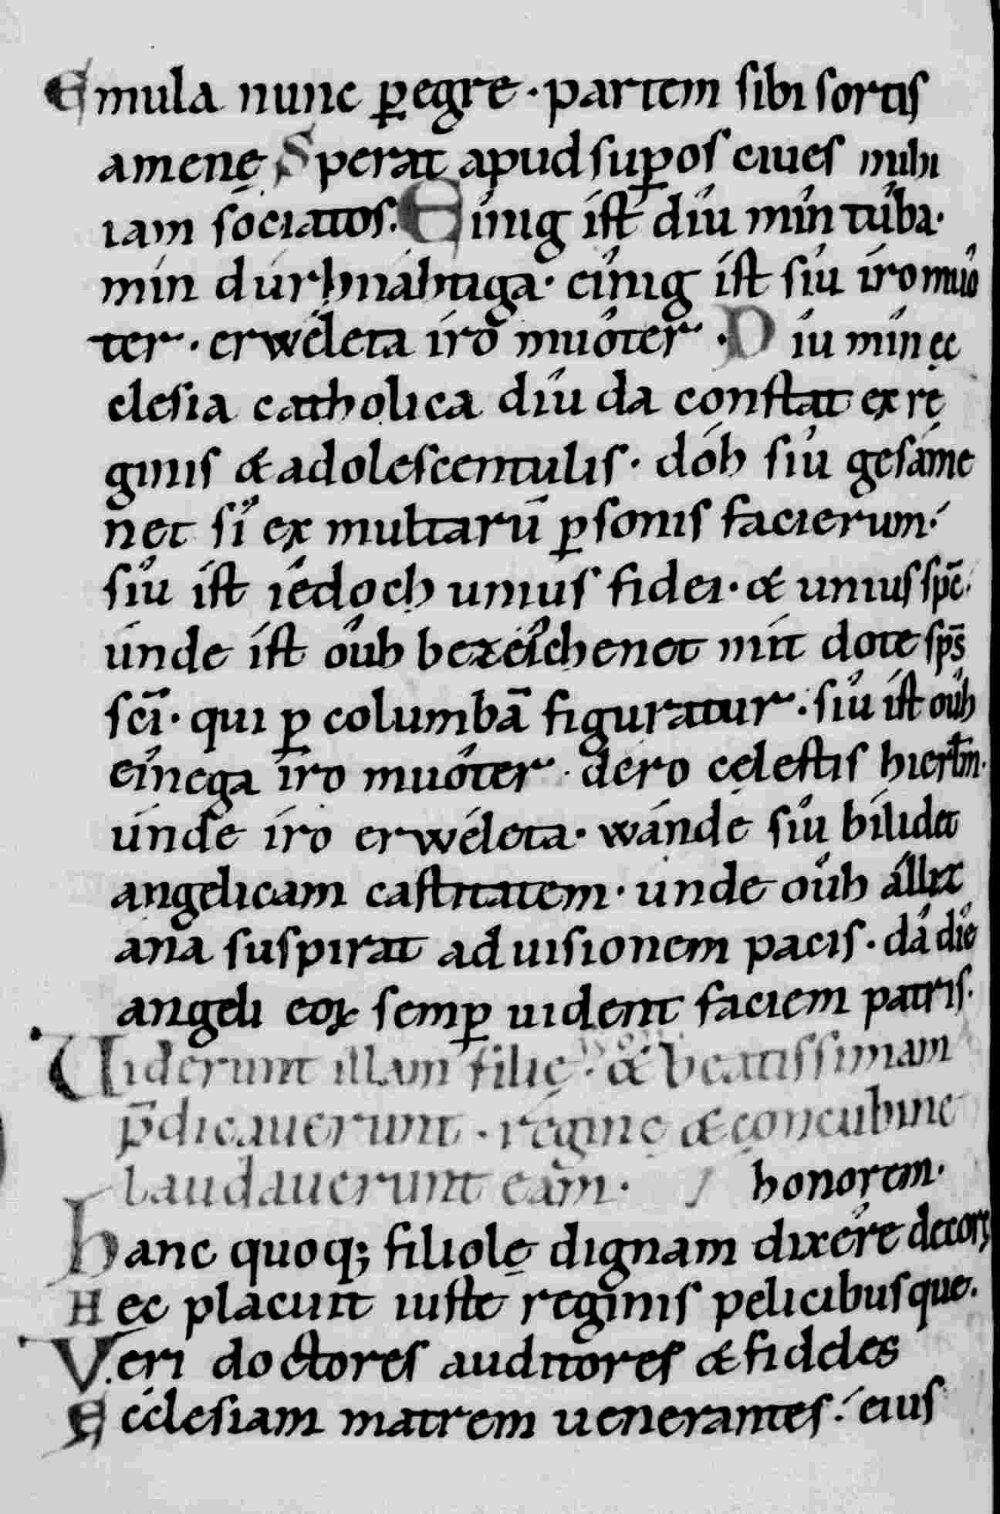 Emula nunc ꝑegre · partem sibi sortis
amenę Sperat apud suꝑos ciues mihi
iam sociatos. Eı́nig ı́st dı́u mı́n tûba·
mı́n dúrhnáhtiga · eı́nig ı́st sı́u ı́ro muô
ter · erwéleta ı́ro muôter · Dıu mı́n ęc
clesia catholica dı́u da constat ex re
ginis & adolescentulis · dóh sı́u gesáme
net sı́ ex multarū ꝑsonis facierum·
sı́u ı́st iêdoch unius fidei · & unius spc̄·
únde ı́st oûh bezeîchenet mı́t dote sps̄
scı̄ · qui ꝑ columbā figuratur · sı́u ı́st oûh
eı́nega ı́ro muôter · déro cęlestis hierłm·
únde ı́ro erwéleta · wánde sı́u bı́lidet
angelicam castitatem · unde oûh állez
ana suspirat ad uisionem pacis · dâ dı́e
angeli eoꝝ semꝑ uident faciem patris·
Uiderunt illam filię · & beatissimam
p̄dicauerunt · reginę & concubinę
laudauerunt eam · honorem·
Hanc quoq; filiolę dignam dixêre decoris
Hęc placuit iuste reginis pelicibusque·
Veri doctores auditores & fideles
Ecclesiam matrem uenerantes · eius